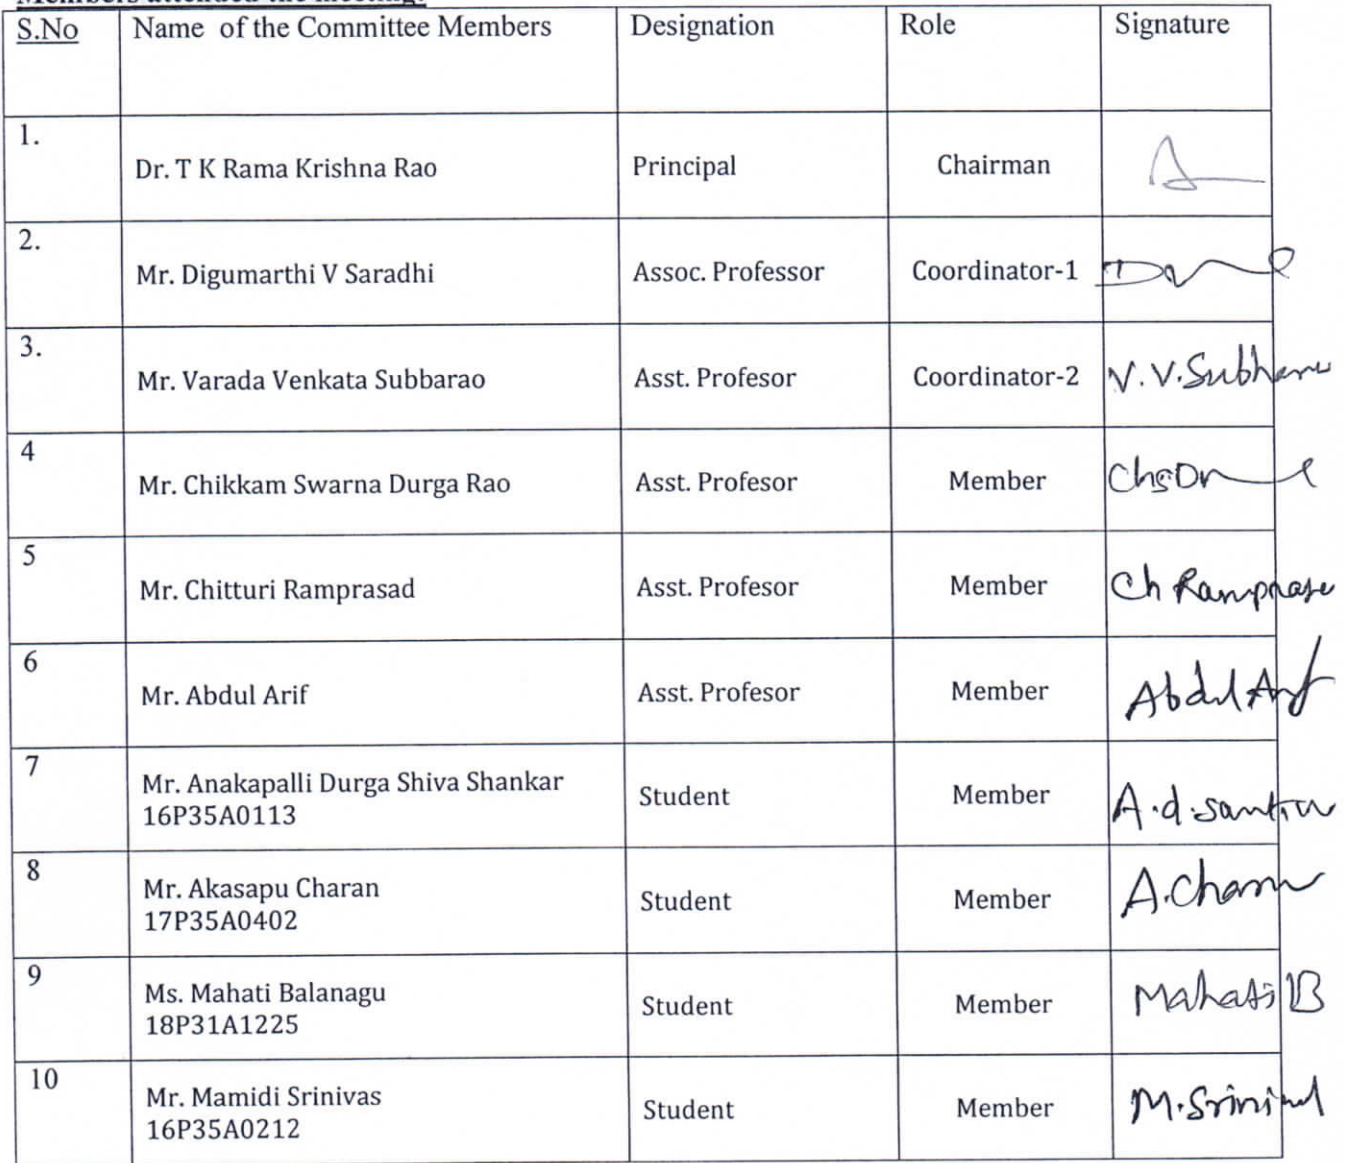 Members attended the meeting:
S.No Name of the Committee Members Designation Role Signature
1. Dr. T K Rama Krishna Rao Principal Chairman
2. Mr. Digumarthi V Saradhi Assoc. Professor Coordinator-1
3. Mr. Varada Venkata Subbarao Asst. Profesor Coordinator-2 V.V.Subbarao
4 Mr. Chikkam Swarna Durga Rao Asst. Profesor Member
5 Mr. Chitturi Ramprasad Asst. Profesor Member Ch Ramprasad
6 Mr. Abdul Arif Asst. Profesor Member Abdul Arif
7 Mr. Anakapalli Durga Shiva Shankar Student Member A.d.sankar
16P35A0113
8 Mr. Akasapu Charan Student Member A.Charan
17P35A0402
9 Ms. Mahati Balanagu Student Member Mahati B
18P31A1225
10 Mr. Mamidi Srinivas Student Member M.Srinivas
16P35A0212